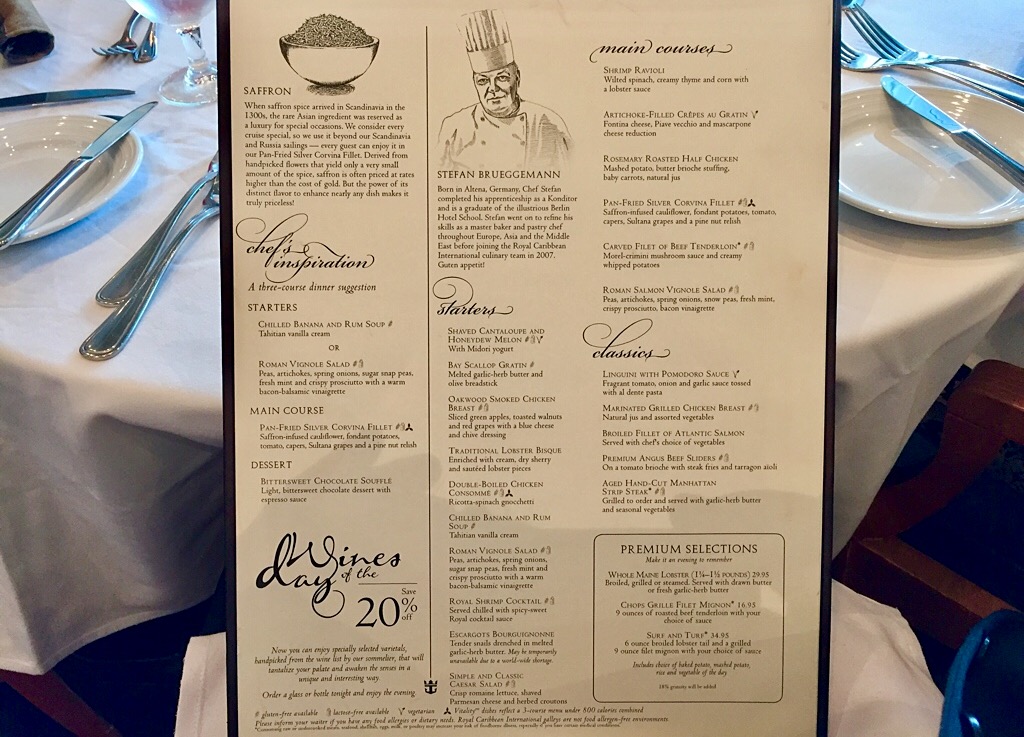 SAFFRON
When saffron spice arrived in Scandinavia in the
1300s, the rare Asian ingredient was reserved as
a luxury for special occasions. We consider every
cruise special, so we use it beyond our Scandinavia
and Russia sailings — every guest can enjoy it in
our Pan-Fried Silver Corvina Fillet. Derived from
handpicked flowers that yield only a very small
amount of the spice, saffron is often priced at rates
higher than the cost of gold. But the power of its
distinct flavor to enhance nearly any dish makes it
truly priceless!
chef's
inspiration
A three-course dinner suggestion
STARTERS
CHILLED BANANA AND RUM SOUP
Tahitian vanilla cream
OR
ROMAN VIGNOLE SALAD
Peas, artichokes, spring onions, sugar snap peas,
fresh mint and crispy prosciutto with a warm
bacon-balsamic vinaigrette
MAIN COURSE
PAN-FRIED SILVER CORVINA FILLET
Saffron-infused cauliflower, fondant potatoes,
tomato, capers, Sultana grapes and a pine nut relish
DESSERT
BITTERSWEET CHOCOLATE SOUFFLÉ
Light, bittersweet chocolate dessert with
espresso sauce
Wines
of the
day
Save
20%
off
Now you can enjoy specially selected varietals,
handpicked from the wine list by our sommelier, that will
tantalize your palate and awaken the senses in a
unique and interesting way.
Order a glass or bottle tonight and enjoy the evening.
STEFAN BRUEGGEMANN
Born in Altena, Germany, Chef Stefan
completed his apprenticeship as a Konditor
and is a graduate of the illustrious Berlin
Hotel School. Stefan went on to refine his
skills as a master baker and pastry chef
throughout Europe, Asia and the Middle
East before joining the Royal Caribbean
International culinary team in 2007.
Guten appetit!
starters
SHAVED CANTALOUPE AND
HONEYDEW MELON
With Midori yogurt
BAY SCALLOP GRATIN
Melted garlic-herb butter and
olive breadstick
OAKWOOD SMOKED CHICKEN
BREAST
Sliced green apples, toasted walnuts
and red grapes with a blue cheese
and chive dressing
TRADITIONAL LOBSTER BISQUE
Enriched with cream, dry sherry
and sautéed lobster pieces
DOUBLE-BOILED CHICKEN
CONSOMMÉ
Ricotta-spinach gnocchetti
CHILLED BANANA AND RUM
SOUP
Tahitian vanilla cream
ROMAN VIGNOLE SALAD
Peas, artichokes, spring onions,
sugar snap peas, fresh mint and
crispy prosciutto with a warm
bacon-balsamic vinaigrette
ROYAL SHRIMP COCKTAIL
Served chilled with spicy-sweet
Royal cocktail sauce
ESCARGOTS BOURGUIGNONNE
Tender snails drenched in melted
garlic-herb butter. May be temporarily
unavailable due to a world-wide shortage.
SIMPLE AND CLASSIC
CAESAR SALAD
Crisp romaine lettuce, shaved
Parmesan cheese and herbed croutons
main courses
SHRIMP RAVIOLI
Wilted spinach, creamy thyme and corn with
a lobster sauce
ARTICHOKE-FILLED CRÊPES AU GRATIN
Fontina cheese, Piave vecchio and mascarpone
cheese reduction
ROSEMARY ROASTED HALF CHICKEN
Mashed potato, butter brioche stuffing,
baby carrots, natural jus
PAN-FRIED SILVER CORVINA FILLET
Saffron-infused cauliflower, fondant potatoes, tomato,
capers, Sultana grapes and a pine nut relish
CARVED FILET OF BEEF TENDERLOIN*
Morel-crimini mushroom sauce and creamy
whipped potatoes
ROMAN SALMON VIGNOLE SALAD
Peas, artichokes, spring onions, snow peas, fresh mint,
crispy prosciutto, bacon vinaigrette
classics
LINGUINI WITH POMODORO SAUCE
Fragrant tomato, onion and garlic sauce tossed
with al dente pasta
MARINATED GRILLED CHICKEN BREAST
Natural jus and assorted vegetables
BROILED FILLET OF ATLANTIC SALMON
Served with chef's choice of vegetables
PREMIUM ANGUS BEEF SLIDERS
On a tomato brioche with steak fries and tarragon aioli
AGED HAND-CUT MANHATTAN
STRIP STEAK*
Grilled to order and served with garlic-herb butter
and seasonal vegetables
PREMIUM SELECTIONS
Make it an evening to remember
WHOLE MAINE LOBSTER (1¼–1½ POUNDS) 29.95
Broiled, grilled or steamed. Served with drawn butter
or fresh garlic-herb butter
CHOPS GRILLE FILET MIGNON* 16.95
9 ounces of roasted beef tenderloin with your
choice of sauce
SURF AND TURF* 34.95
6 ounce broiled lobster tail and a grilled
9 ounce filet mignon with your choice of sauce
Includes choice of baked potato, mashed potato,
rice and vegetable of the day
18% gratuity will be added
gluten-free available lactose-free available vegetarian Vitality™ dishes reflect a 3-course menu under 800 calories combined
Please inform your waiter if you have any food allergies or dietary needs. Royal Caribbean International galleys are not food allergen-free environments.